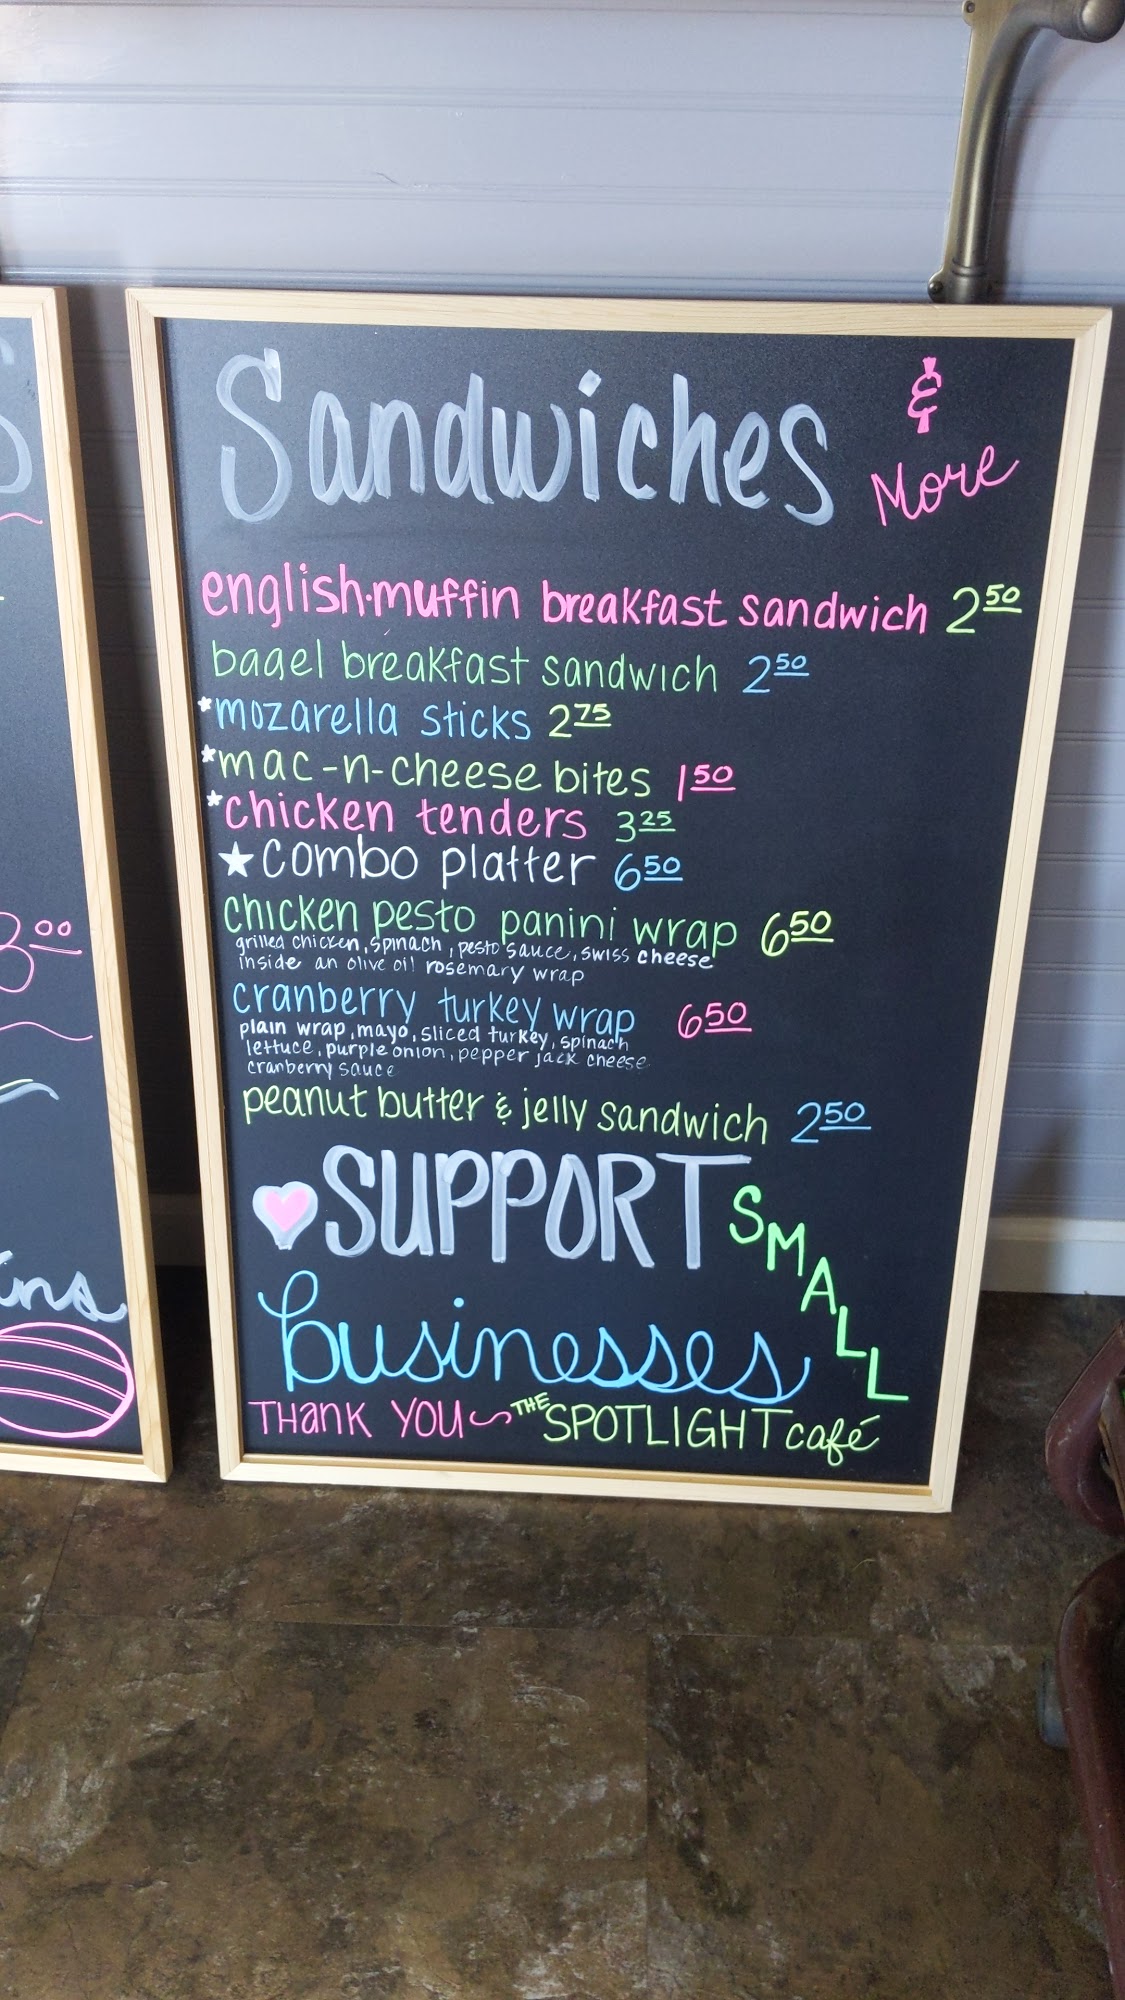 Sandwiches & More
english-muffin breakfast sandwich 2 50
bagel breakfast sandwich 2 50
*mozarella sticks 2 75
*mac-n-cheese bites 1 50
*chicken tenders 3 25
★combo platter 6 50
chicken pesto panini wrap 6 50
grilled chicken, spinach, pesto sauce, swiss cheese
inside an olive oil rosemary wrap
cranberry turkey wrap 6 50
plain wrap, mayo, sliced turkey, spinach
lettuce, purple onion, pepper jack cheese
cranberry sauce
peanut butter & jelly sandwich 2 50
SUPPORT SMALL
businesses
THANK YOU~THE SPOTLIGHT café
3 00